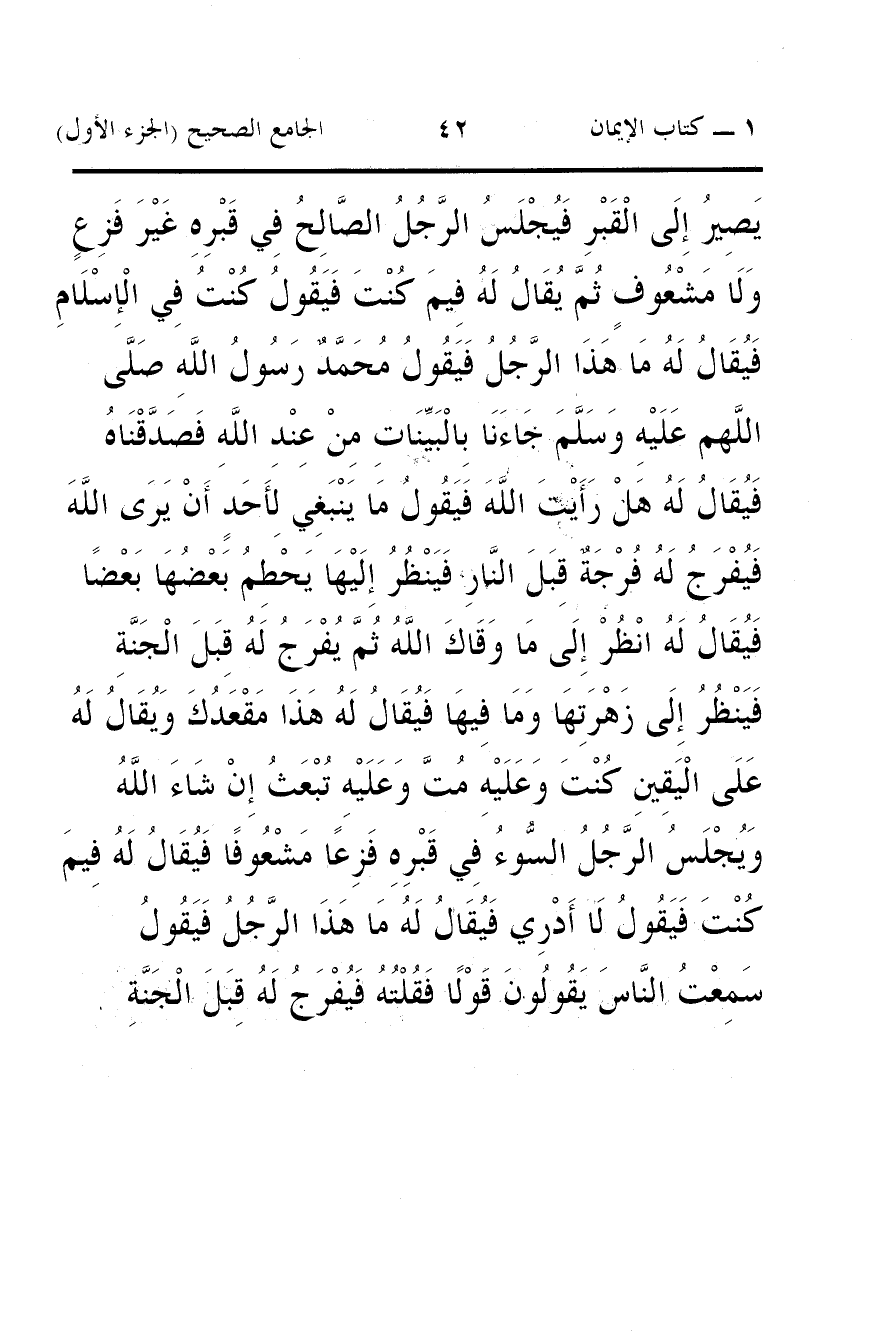 ١ ـ كتاب الإيمان ٤٢ الجامع الصحيح (الجزء الأول)
يَصِيرُ إِلَى الْقَبْرِ فَيُجْلَسُ الرَّجُلُ الصَّالِحُ فِي قَبْرِهِ غَيْرَ فَزِعٍ
وَلَا مَشْعُوفٍ ثُمَّ يُقَالُ لَهُ فِيمَ كُنْتَ فَيَقُولُ كُنْتُ فِي الْإِسْلَامِ
فَيُقَالُ لَهُ مَا هَذَا الرَّجُلُ فَيَقُولُ مُحَمَّدٌ رَسُولُ اللَّهِ صَلَّى
اللَّهم عَلَيْهِ وَسَلَّمَ جَاءَنَا بِالْبَيِّنَاتِ مِنْ عِنْدِ اللَّهِ فَصَدَّقْنَاهُ
فَيُقَالُ لَهُ هَلْ رَأَيْتَ اللَّهَ فَيَقُولُ مَا يَنْبَغِي لِأَحَدٍ أَنْ يَرَى اللَّهَ
فَيُفْرَجُ لَهُ فُرْجَةٌ قِبَلَ النَّارِ فَيَنْظُرُ إِلَيْهَا يَحْطِمُ بَعْضُهَا بَعْضًا
فَيُقَالُ لَهُ انْظُرْ إِلَى مَا وَقَاكَ اللَّهُ ثُمَّ يُفْرَجُ لَهُ قِبَلَ الْجَنَّةِ
فَيَنْظُرُ إِلَى زَهْرَتِهَا وَمَا فِيهَا فَيُقَالُ لَهُ هَذَا مَقْعَدُكَ وَيُقَالُ لَهُ
عَلَى الْيَقِينِ كُنْتَ وَعَلَيْهِ مُتَّ وَعَلَيْهِ تُبْعَثُ إِنْ شَاءَ اللَّهُ
وَيُجْلَسُ الرَّجُلُ السُّوءُ فِي قَبْرِهِ فَزِعًا مَشْعُوفًا فَيُقَالُ لَهُ فِيمَ
كُنْتَ فَيَقُولُ لَا أَدْرِي فَيُقَالُ لَهُ مَا هَذَا الرَّجُلُ فَيَقُولُ
سَمِعْتُ النَّاسَ يَقُولُونَ قَوْلًا فَقُلْتُهُ فَيُفْرَجُ لَهُ قِبَلَ الْجَنَّةِ